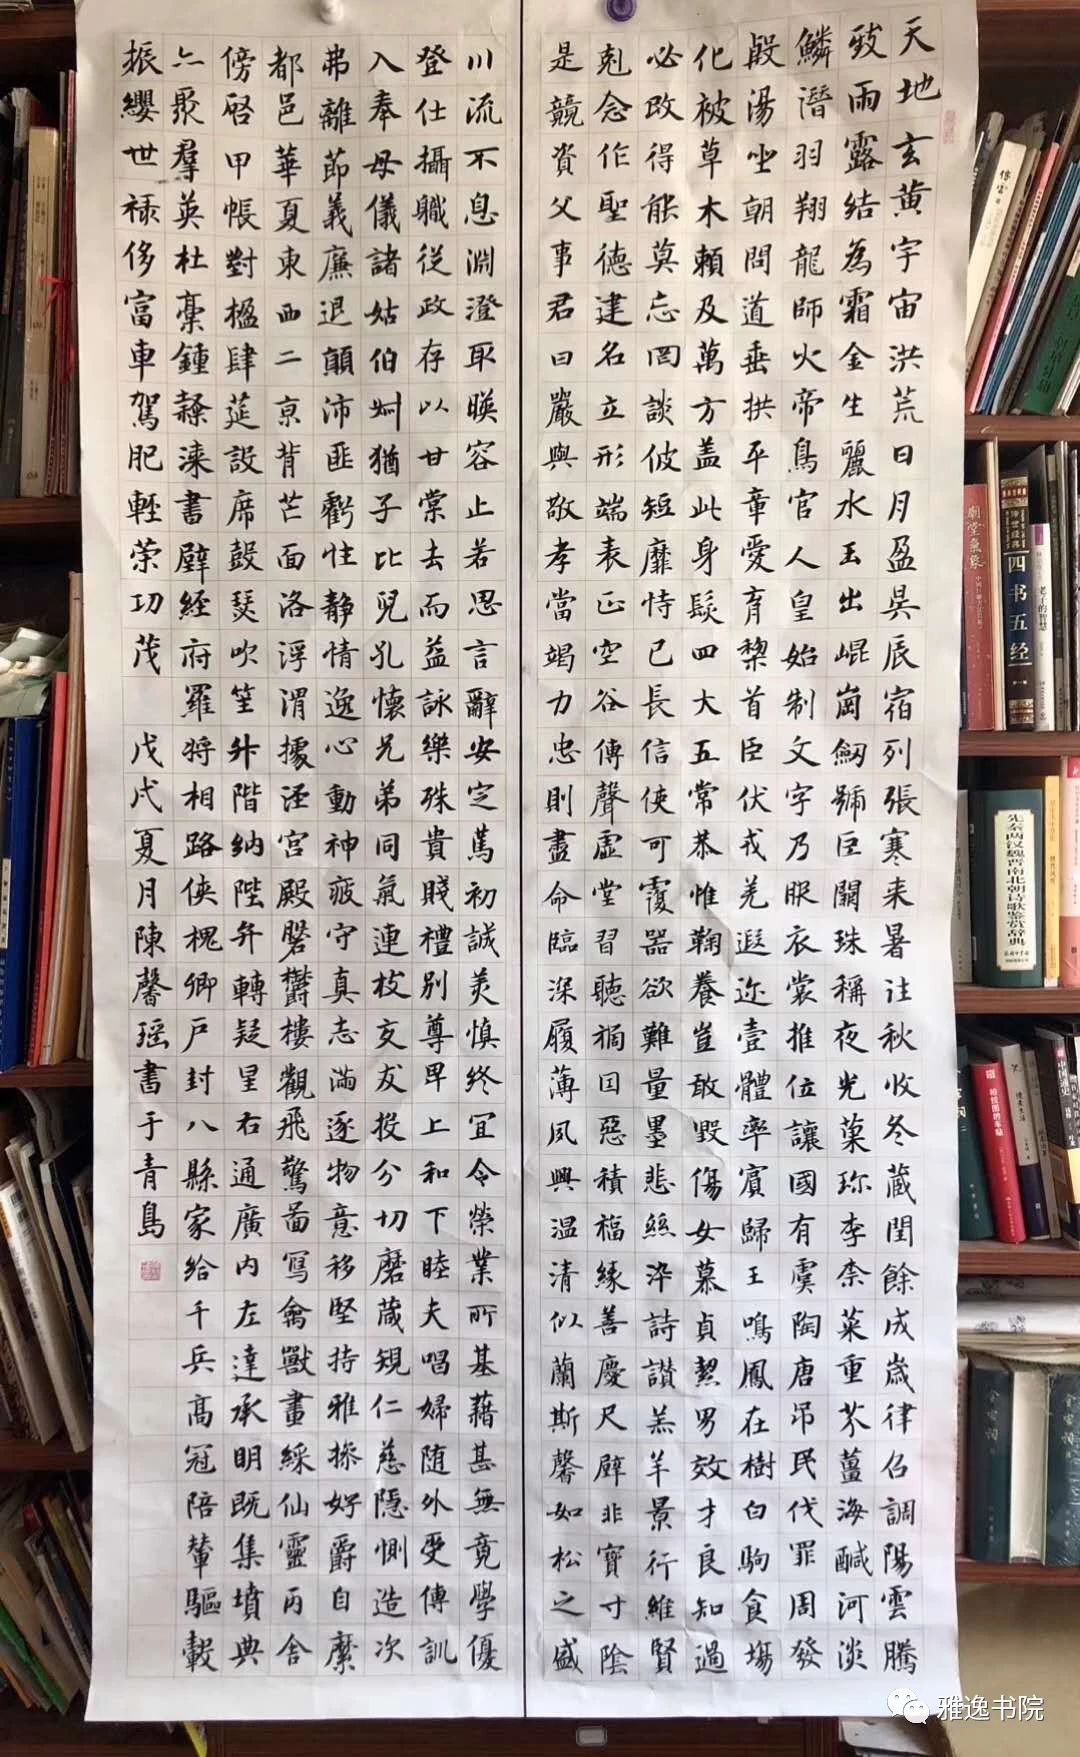 天地玄黄宇宙洪荒日月盈昃辰宿列張寒来暑往秋收冬藏閏餘成歲律召調陽雲騰
致雨露結為霜金生麗水玉出崐崗劒號巨闕珠稱夜光菓珎李柰菜重芥薑海鹹河淡
鱗潛羽翔龍師火帝鳥官人皇始制文字乃服衣裳推位讓國有虞陶唐吊民伐罪周發
殷湯坐朝問道垂拱平章愛育黎首臣伏戎羌遐迩壹體率賓歸王鳴鳳在樹白駒食場
化被草木賴及萬方盖此身髮四大五常恭惟鞠養豈敢毀傷女慕貞絜男效才良知過
必改得能莫忘罔談彼短靡恃己長信使可覆器欲難量墨悲絲染詩讃羔羊景行維賢
剋念作聖德建名立形端表正空谷傳聲虛堂習聽禍因惡積福緣善慶尺璧非寶寸陰
是競資父事君曰嚴與敬孝當竭力忠則盡命臨深履薄夙興温清似蘭斯馨如松之盛
川流不息淵澄取暎容止若思言辭安定篤初誠美慎終宜令榮業所基藉甚無竟學優
登仕攝職從政存以甘棠去而益詠樂殊貴賤禮別尊卑上和下睦夫唱婦随外受傅訓
入奉母儀諸姑伯叔猶子比兒孔懷兄弟同氣連枝交友投分切磨箴規仁慈隱惻造次
弗離節義廉退顛沛匪虧性静情逸心動神疲守真志滿逐物意移堅持雅操好爵自縻
都邑華夏東西二京背芒面洛浮渭據涇宮殿磐欝樓觀飛驚啚寫禽獸畫綵仙靈丙舍
傍啓甲帳對楹肆莚設席鼓瑟吹笙升階納陛弁轉疑星右通廣内左達承明既集墳典
亦聚羣英杜稾鍾隸漆書壁經府羅将相路俠槐卿戸封八縣家給千兵高冠陪輦驅轂
振纓世禄侈富車駕肥輕策功茂 戊戌夏月陳馨瑶書于青島
四书五经
老子的智慧
先秦两汉魏晋南北朝诗歌鉴赏辞典
雅逸书院